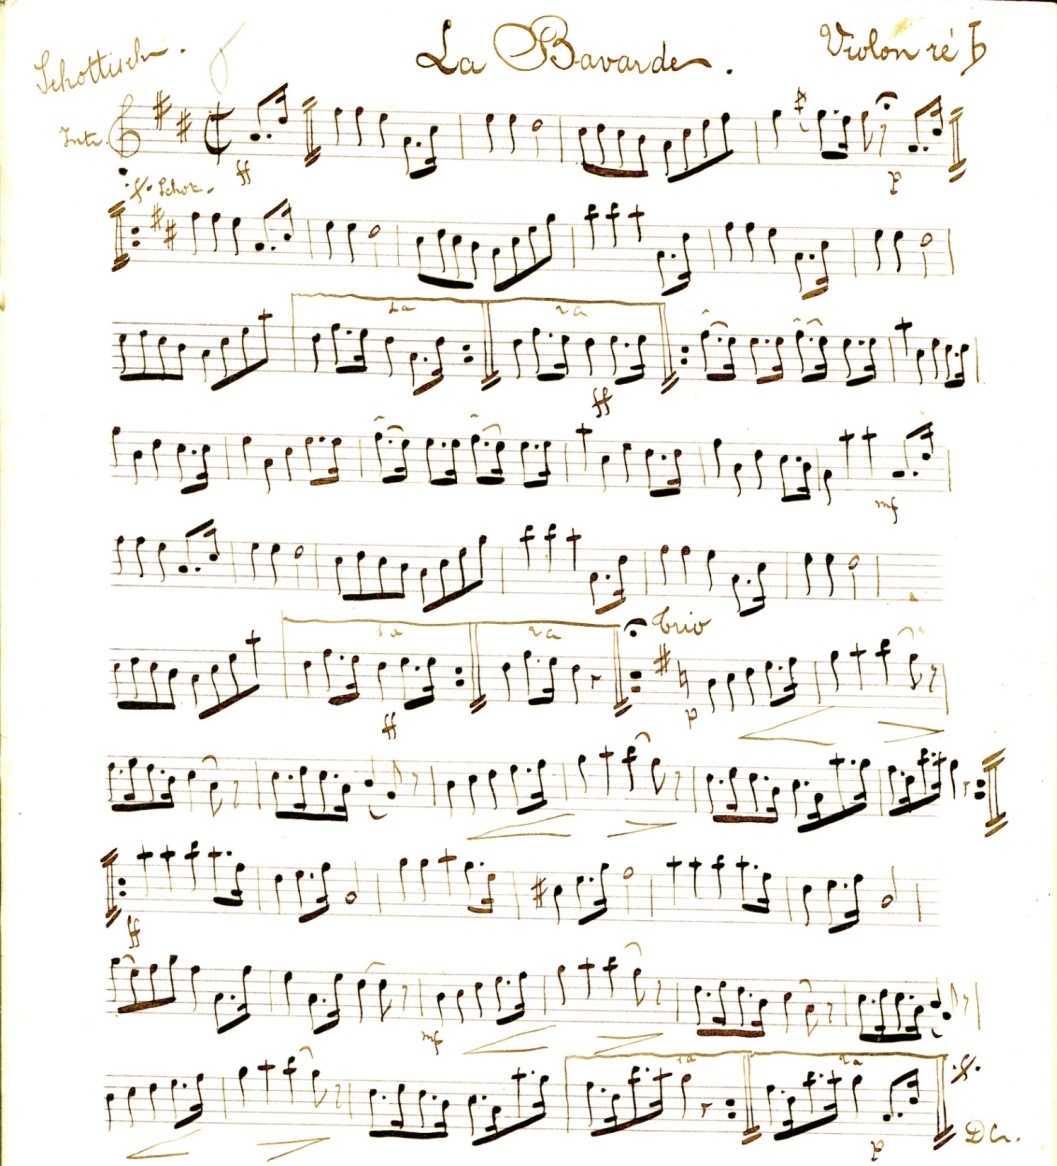 Schottisch. La Bavarde. Violon ré
Intr. ff p
Schot.
1a 2a
ff
mf
1a 2a Trio
ff p
ff
mf
1a 2a
p DC.